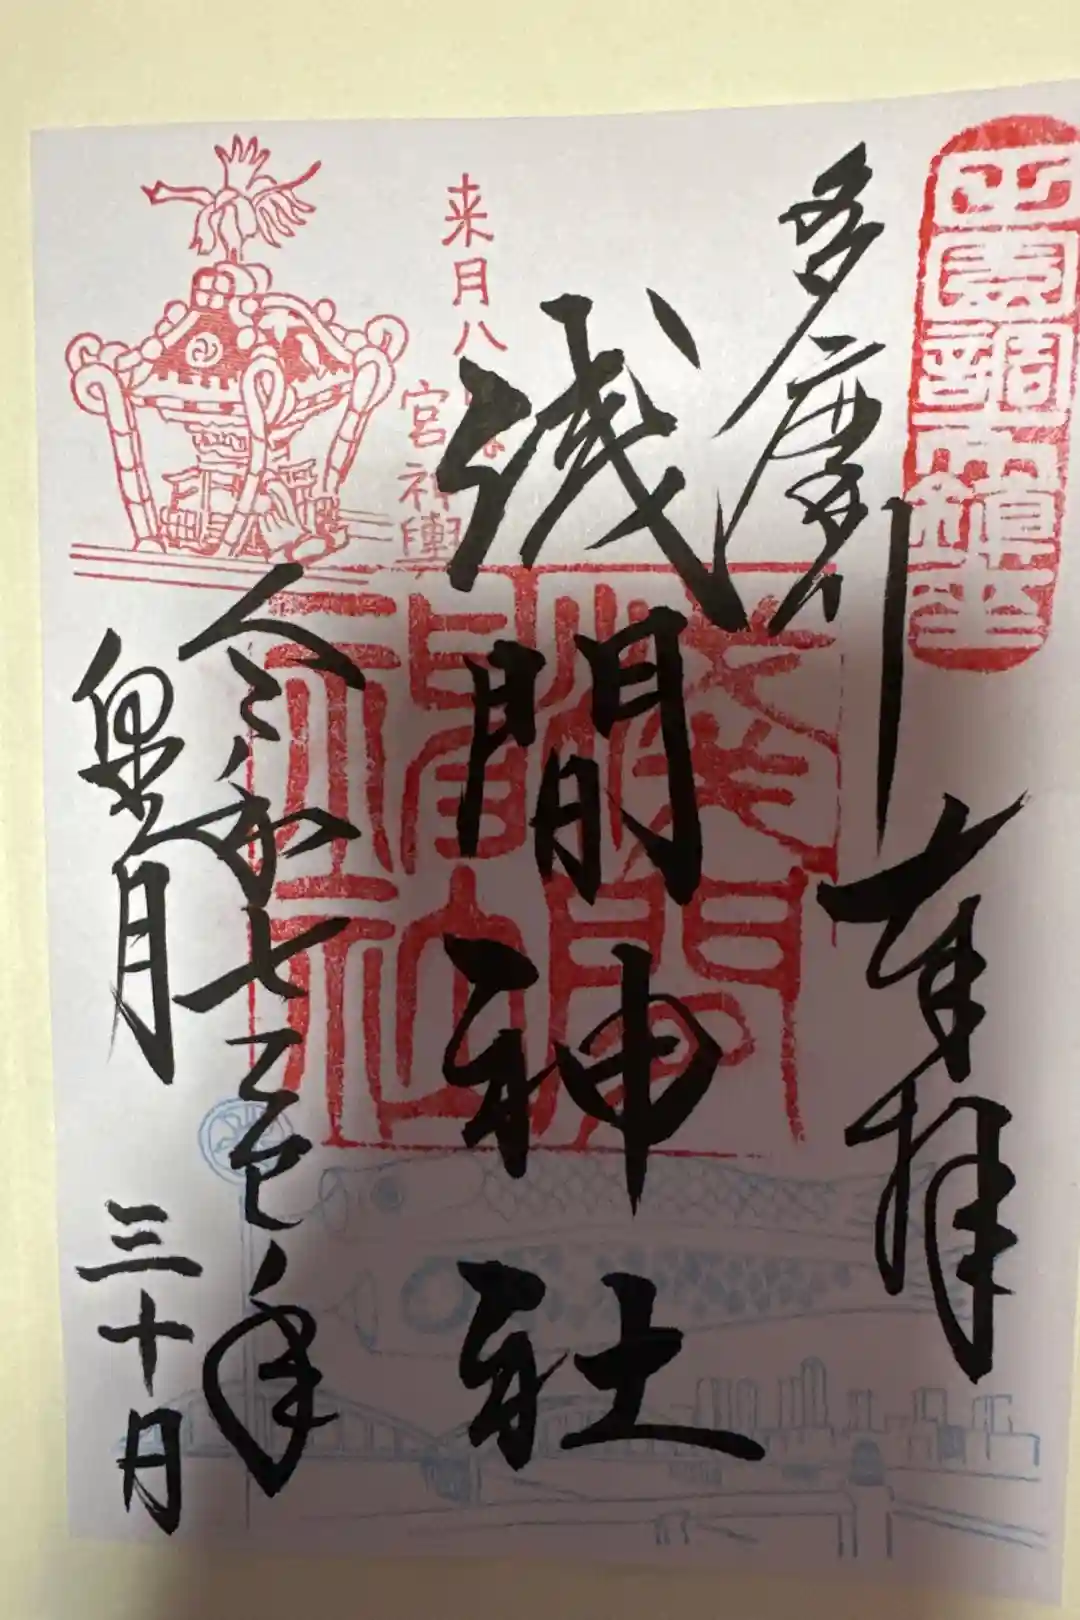 田園調布鎮座
多摩川
奉拝
浅間神社
来月八
宮神輿
令和七乙巳年
皐月三十日